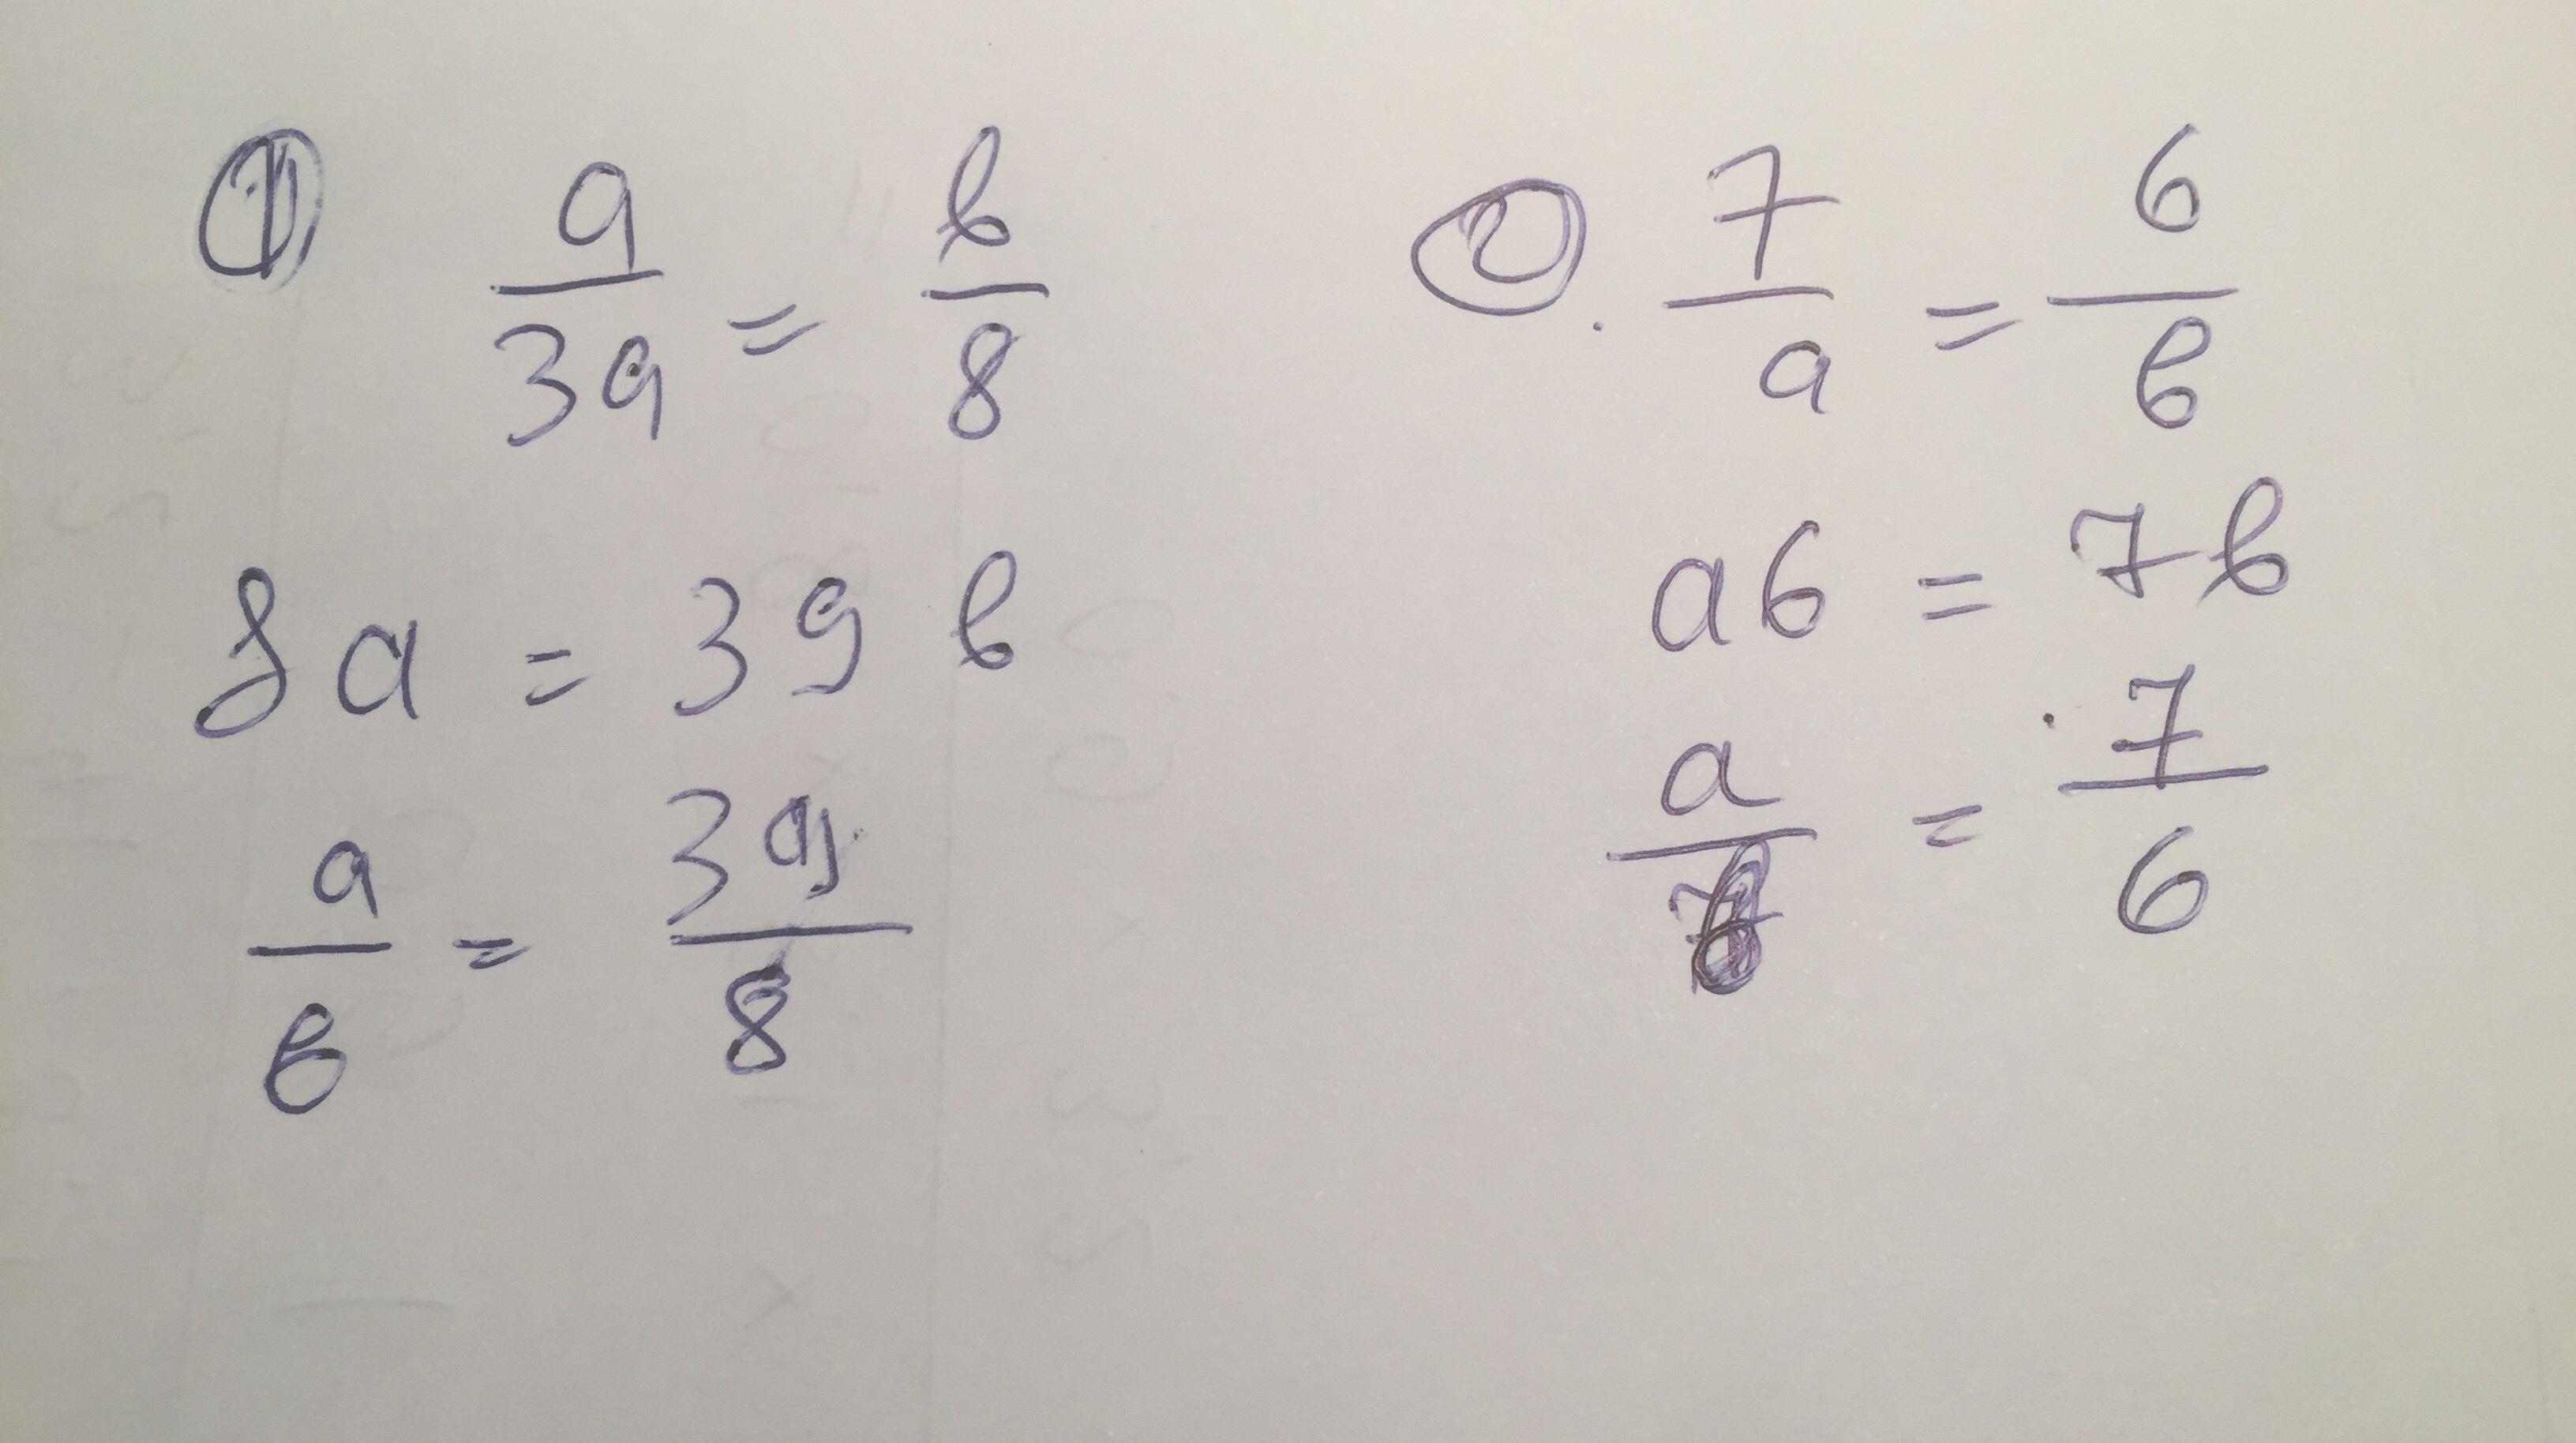 ① a/39 = b/8
8a = 39b
a/b = 39/8
②. 7/a = 6/b
a6 = 7b
a/b = 7/6